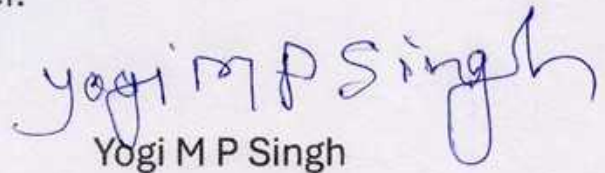 yogi M P Singh
Yogi M P Singh